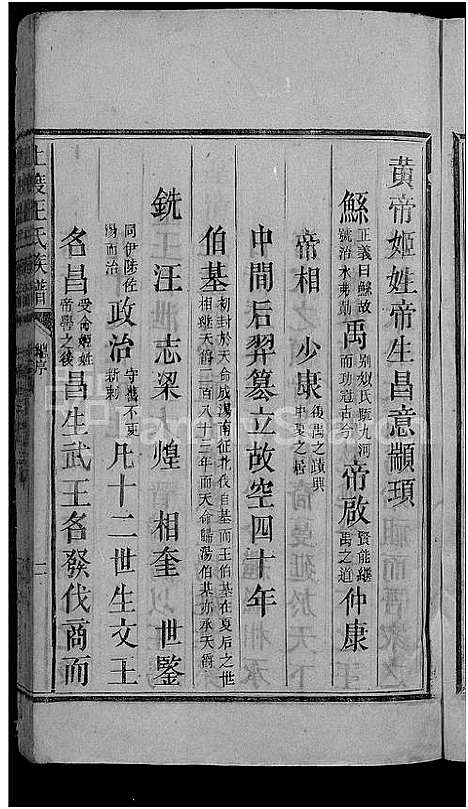 黄帝姬姓帝生昌意顓頊
鯀正義曰鯀故號治水弗勛禹別姒氏甄九河而功逭古今帝啟賢能繼禹之道仲康
帝相少康後禹之蹟興中夏之居
中間后羿篡立故空四十年
伯基初封於天命成湯南征北伐自基而王伯基在夏后之世相繼天爵二百八十三年而天命歸湯伯基亦承天爵
銑汪志梁煌相奎世鑒
同伊陟佐湯而治政治守舊不更新制凡十二世生文王
名昌受命姬姓帝嚳之後昌生武王名發伐商而
上渡汪氏族譜